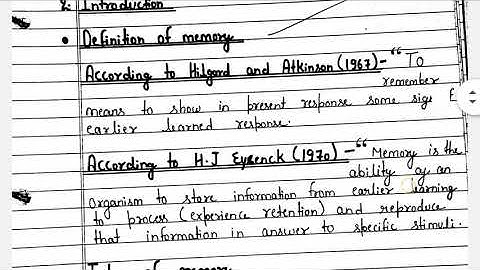 Introduction
• Definition of memory
According to Hilgard and Atkinson (1967)- "To
remember
means to show in present response some sigs
earlier learned response.
According to H.J Eysenck (1970) - "Memory is the
ability of an
organism to store information from earlier learning
to process (experience retention) and reproduce
that information in answer to specific stimuli.
of memory